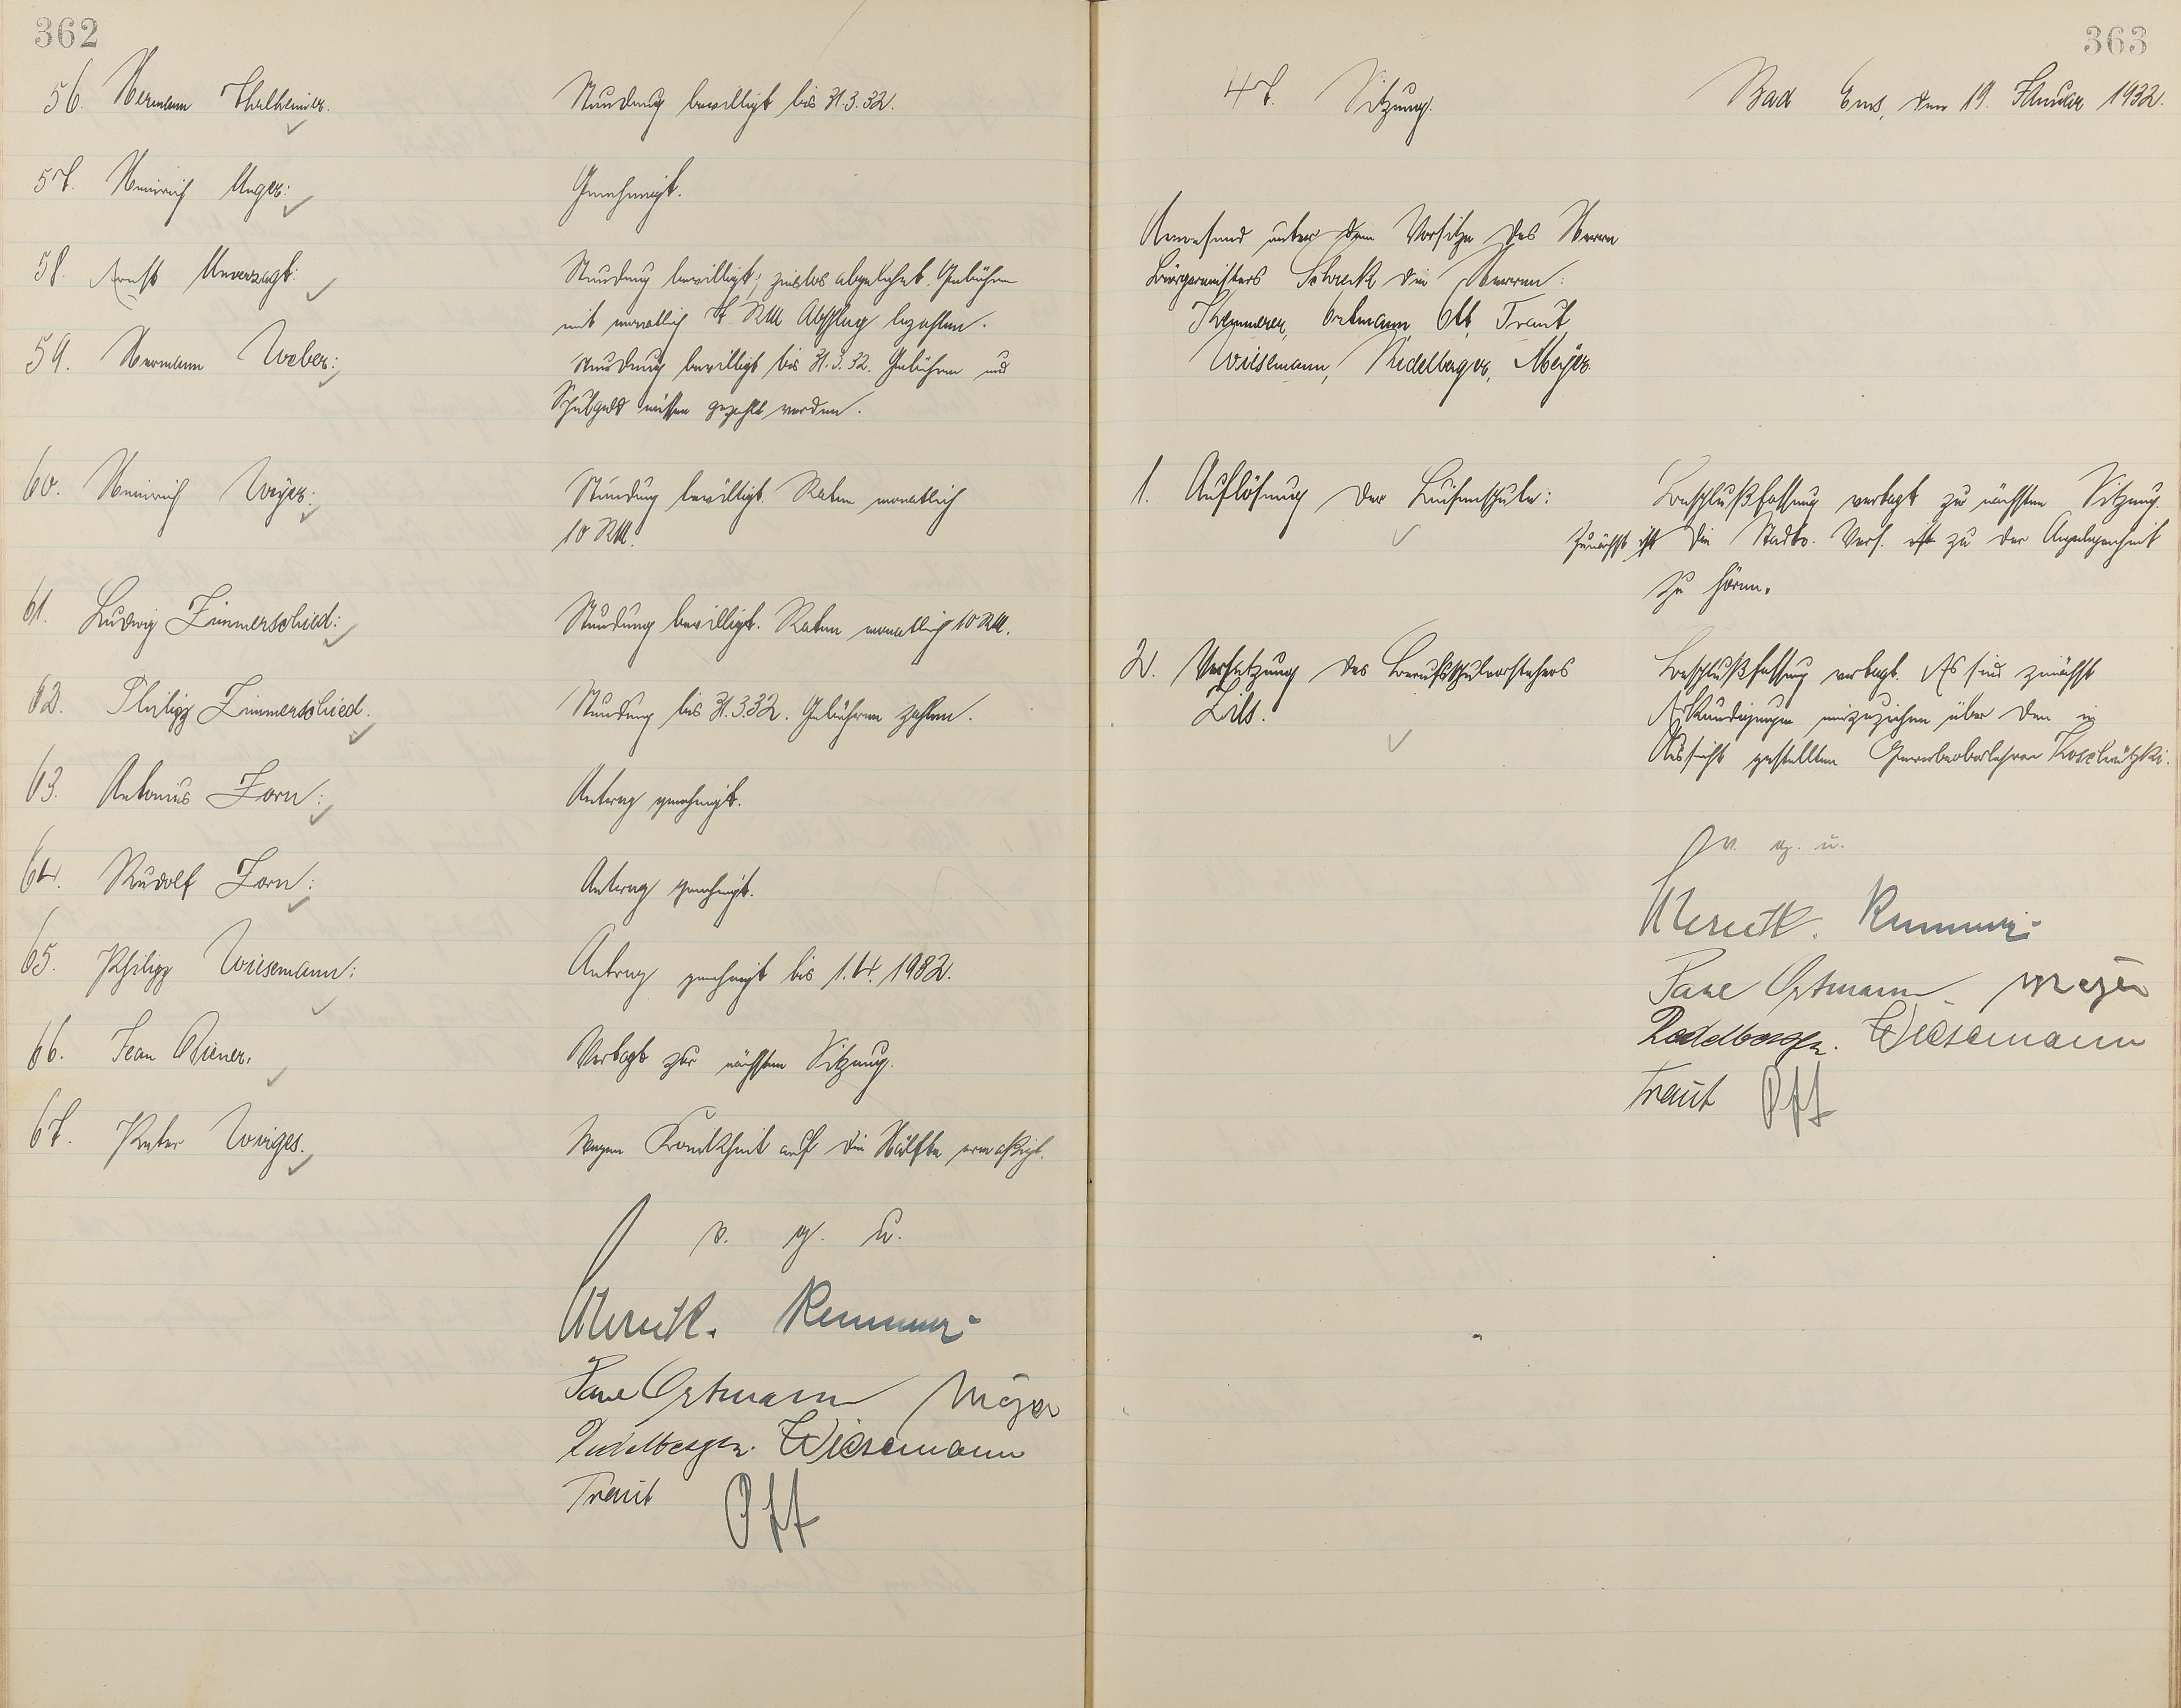 362
56. Hermann Thalheimer.
Stundung bewilligt bis 31.3.32.
57. Heinrich Unger:
Genehmigt.
58. Ernst Unverzagt:
Stundung bewilligt; zinslos abgelehnt. Gebühren
mit monatlich 7 RM Abschlag bezahlen.
59. Hermann Weber:
Stundung bewilligt bis 31.3.32. Gebühren und
Schulgeld müssen gezahlt werden.
60. Heinrich Weyer:
Stundung bewilligt. Raten monatlich
10 RM.
61. Ludwig Zimmerschied:
Stundung bewilligt. Raten monatlich 10 RM.
62. Philipp Zimmerschied.
Stundung bis 31.3.32. Gebühren zahlen.
63. Antonius Zorn:
Antrag genehmigt.
64. Rudolf Zorn:
Antrag genehmigt.
65. Philipp Wiesemann:
Antrag genehmigt bis 1.4.1932.
66. Jean
Vertagt zur nächsten Sitzung.
67. Peter
Wegen Krankheit auf die Hälfte ermäßigt.
v. g. u.
Schreck. Kemmerer
Ortmann Meyer
Riedelberger. Wiesemann
Traut Ott
363
47. Sitzung.
Bad Ems, den 19. Januar 1932.
Anwesend unter dem Vorsitze des Herrn
Bürgermeisters Schreck die Herren:
Kemmerer, Ortmann, Ott, Traut,
Wiesemann, Riedelberger, Meyer.
1. Auflösung der Luisenschule:
Beschlußfassung vertagt zur nächsten Sitzung.
Zunächst ist die Stadtv. Vers. ist zu der Angelegenheit
zu hören.
2. Versetzung des Berufsschulvorstehers
Zils.
Beschlußfassung vertagt. Es sind zunächst
Erkundigungen einzuziehen über den in
Aussicht gestellten Gewerbeoberlehrer
v. g. u.
Schreck. Kemmerer
Ortmann Meyer
Riedelberger. Wiesemann
Traut Ott